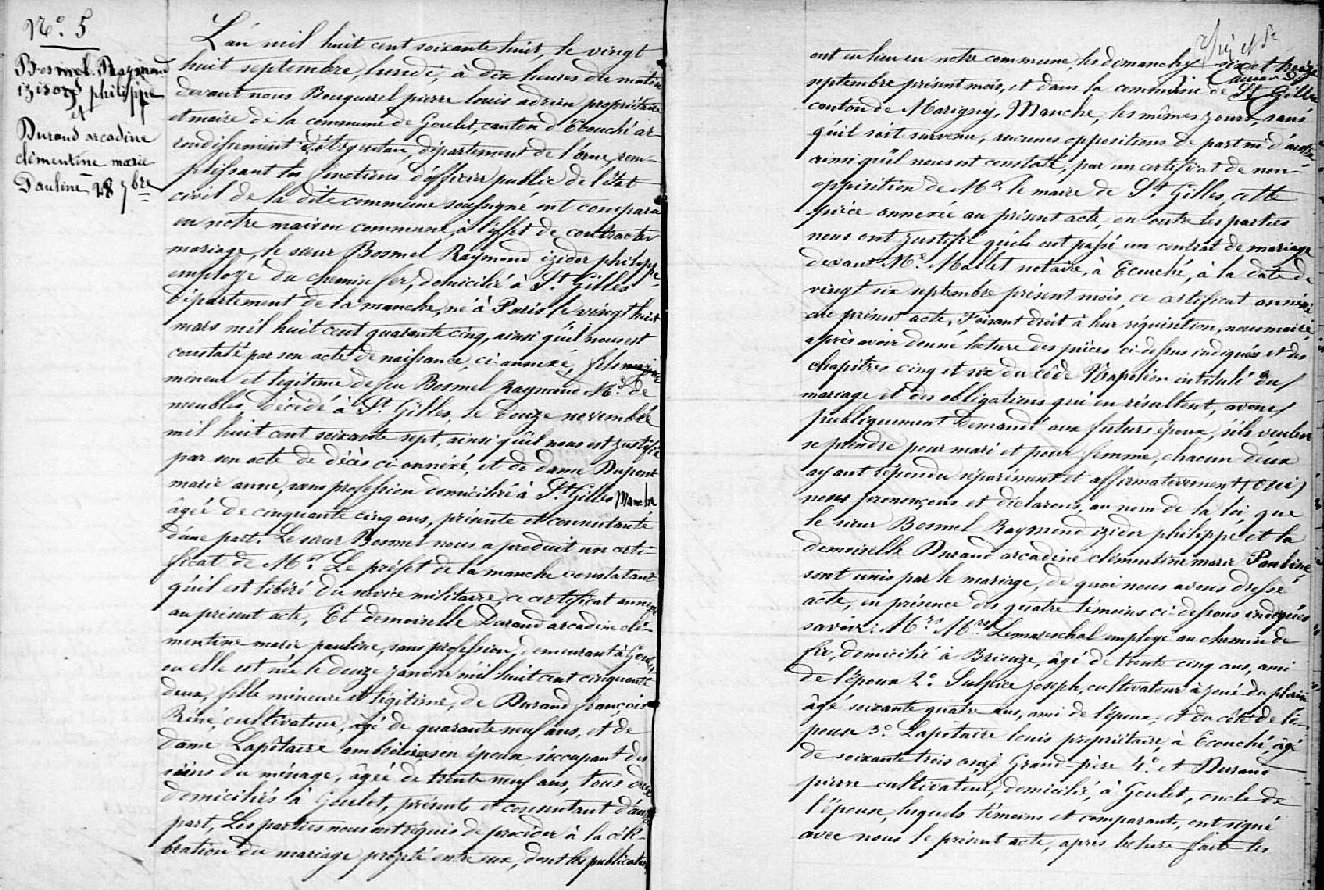 N.° 5
Bosmel Raymond
izidor philippe
et
Durand arcadine
clémentine marie
Pauline 28 7bre
L'an mil huit cent soixante huit, le vingt
huit septembre, lundi, à dix heures du matin
devant nous Bouquerel pierre louis adrien propriétaire
et maire de la commune de Goulet, canton d'Ecouché ar
rondissement d'Argentan, département de l'orne, rem-
plissant les fonctions d'officier public de l'Etat
civil de la dite commune soussigné ont comparu
en notre maison commune, à l'effet de contracter
mariage, le sieur Bosmel Raymond izidor philippe
employé du chemin fer, domicilié à St Gilles
département de la manche, né à Paris le vingt huit
mars mil huit cent quarante cinq, ainsi qu'il nous est
constaté par son acte de naissance, ci annexé, fils majeur
et légitime de feu Bosmel Raymond Md de
meubles, décédé à St Gilles, le douze novembre
mil huit cent soixante sept, ainsi qu'il nous est justifié
par son acte de décès ci annexé, et de dame Dupont
marie anne, sans profession domiciliée à St Gilles, Manche
âgée de cinquante cinq ans, présente et consentante
d'une part. Le sieur Bosmel nous a produit un certi-
ficat de Mr Le préfet de la manche constatant
qu'il est libéré du service militaire, ce certificat annexé
au présent acte, Et demoiselle Durand arcadine clé-
mentine marie pauline, sans profession, demeurant à Goulet
où elle est née le douze janvier mil huit cent cinquante
deux, fille mineure et légitime, de Durand françois
Réné cultivateur, âgé de quarante neuf ans, et de
dame Lapôtaire ambroisine son épouse s'occupant des
soins du ménage, âgée de trente neuf ans, tous deux
domiciliés à Goulet, présents et consentant d'autre
part, Les parties nous ont requis de procéder à la célé
bration du mariage projeté entre eux, dont les publications
ont eu lieu en notre commune, les dimanches six et treize
septembre présent mois, et dans la commune de St Gilles
canton de Marigny, Manche, les mêmes jours, sans
qu'il soit survenu, aucunes oppositions de part ni d'autre
ainsi qu'il nous est constaté, par un certificat de non-
opposition de Mr le maire de St Gilles, cette
pièce annexée au présent acte, en outre les parties
nous ont justifié qu'ils ont passé un contrat de mariage
devant Me Mallet notaire, à Ecouché, à la date du
vingt six septembre présent mois, ce certificat annexé
au présent acte, Faisant droit à leur réquisition, nous maire
après avoir donné lecture des pièces ci dessus indiquées et des
chapitres cinq et six du code Napoléon intitulé du
mariage et des obligations qui en résultent, avons
publiquement demandé aux futurs époux, s'ils veulent
se prendre pour mari et pour femme, chacun deux
ayant répondu séparément et affirmativement (oui)
nous prononçons et déclarons, au nom de la loi, que
le sieur Bosmel Raymond izidor philippe et la
demoiselle Durand arcadine clémentine marie Pauline
sont unis par le mariage, de quoi nous avons dressé
acte, en présence des quatre témoins ci dessous indiqués
savoir: Lemarechal employé au chemin de
fer, domicilié à Briouze, âgé de trente cinq ans, ami
de l'époux 2.° Sulpice joseph, cultivateur à joué du plain
âgé soixante quatre ans, ami de l'époux, et du côté de l'é-
pouse 3.° Lapôtaire louis propriétaire, à Ecouché, âgé
de soixante trois ans, Grand père 4.° et Durand
pierre cultivateur, domicilié, à Goulet, oncle de
l'épouse, lesquels témoins et comparant, ont signé
avec nous le présent acte, après lecture faite les